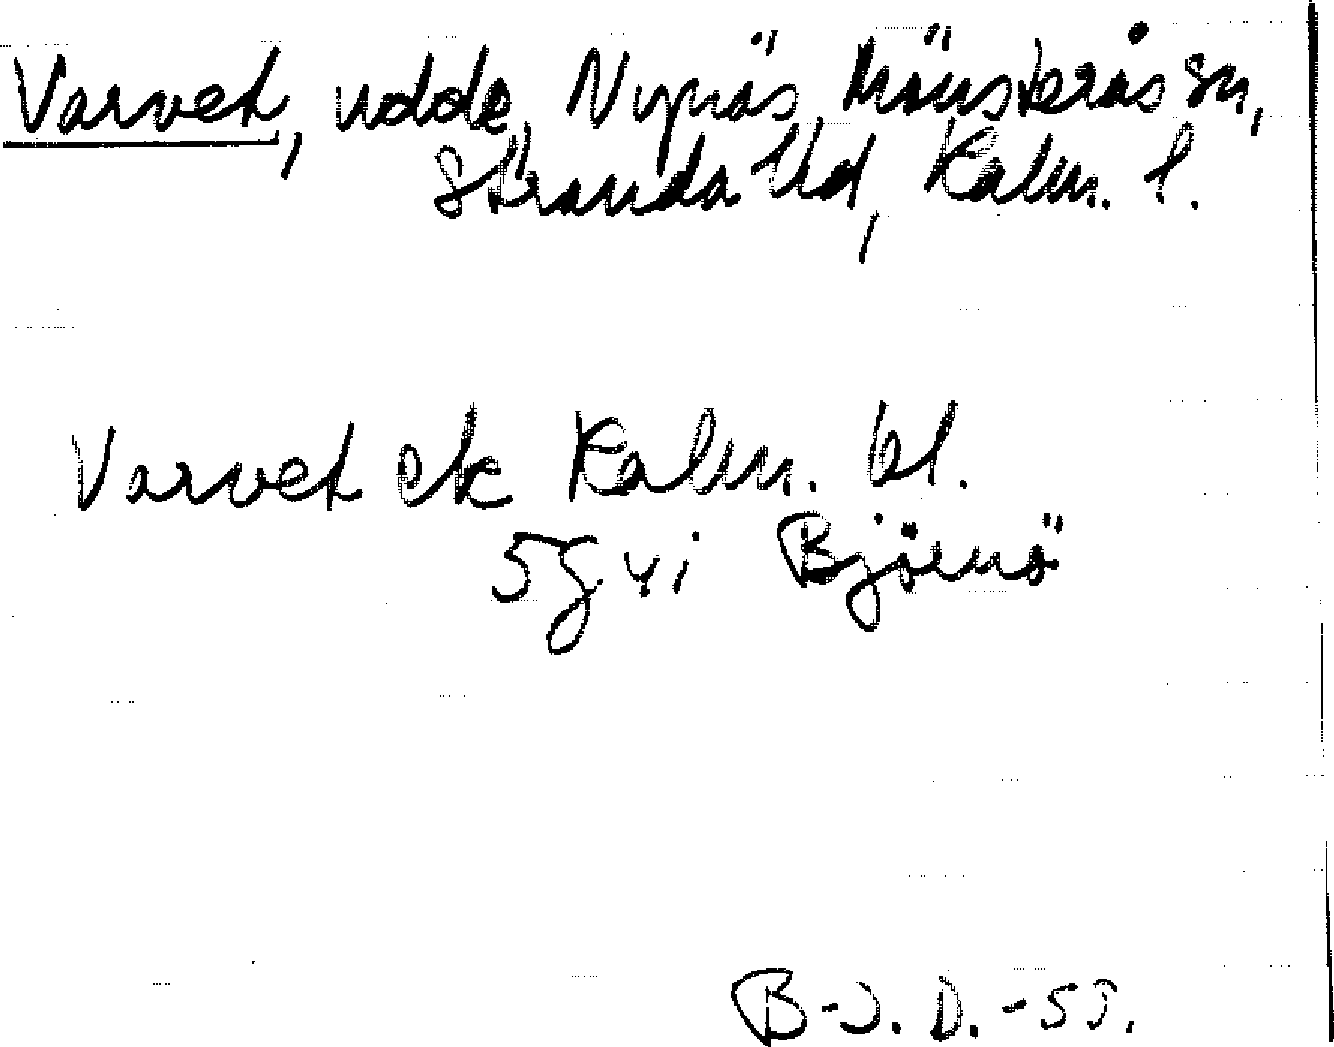 Varvet, udde, Nynäs, Mönsterås sn,
Stranda hd, Kalm. l.
Varvet ek Kalm. bl.
5g yi Björnö
B-J. D. -55.